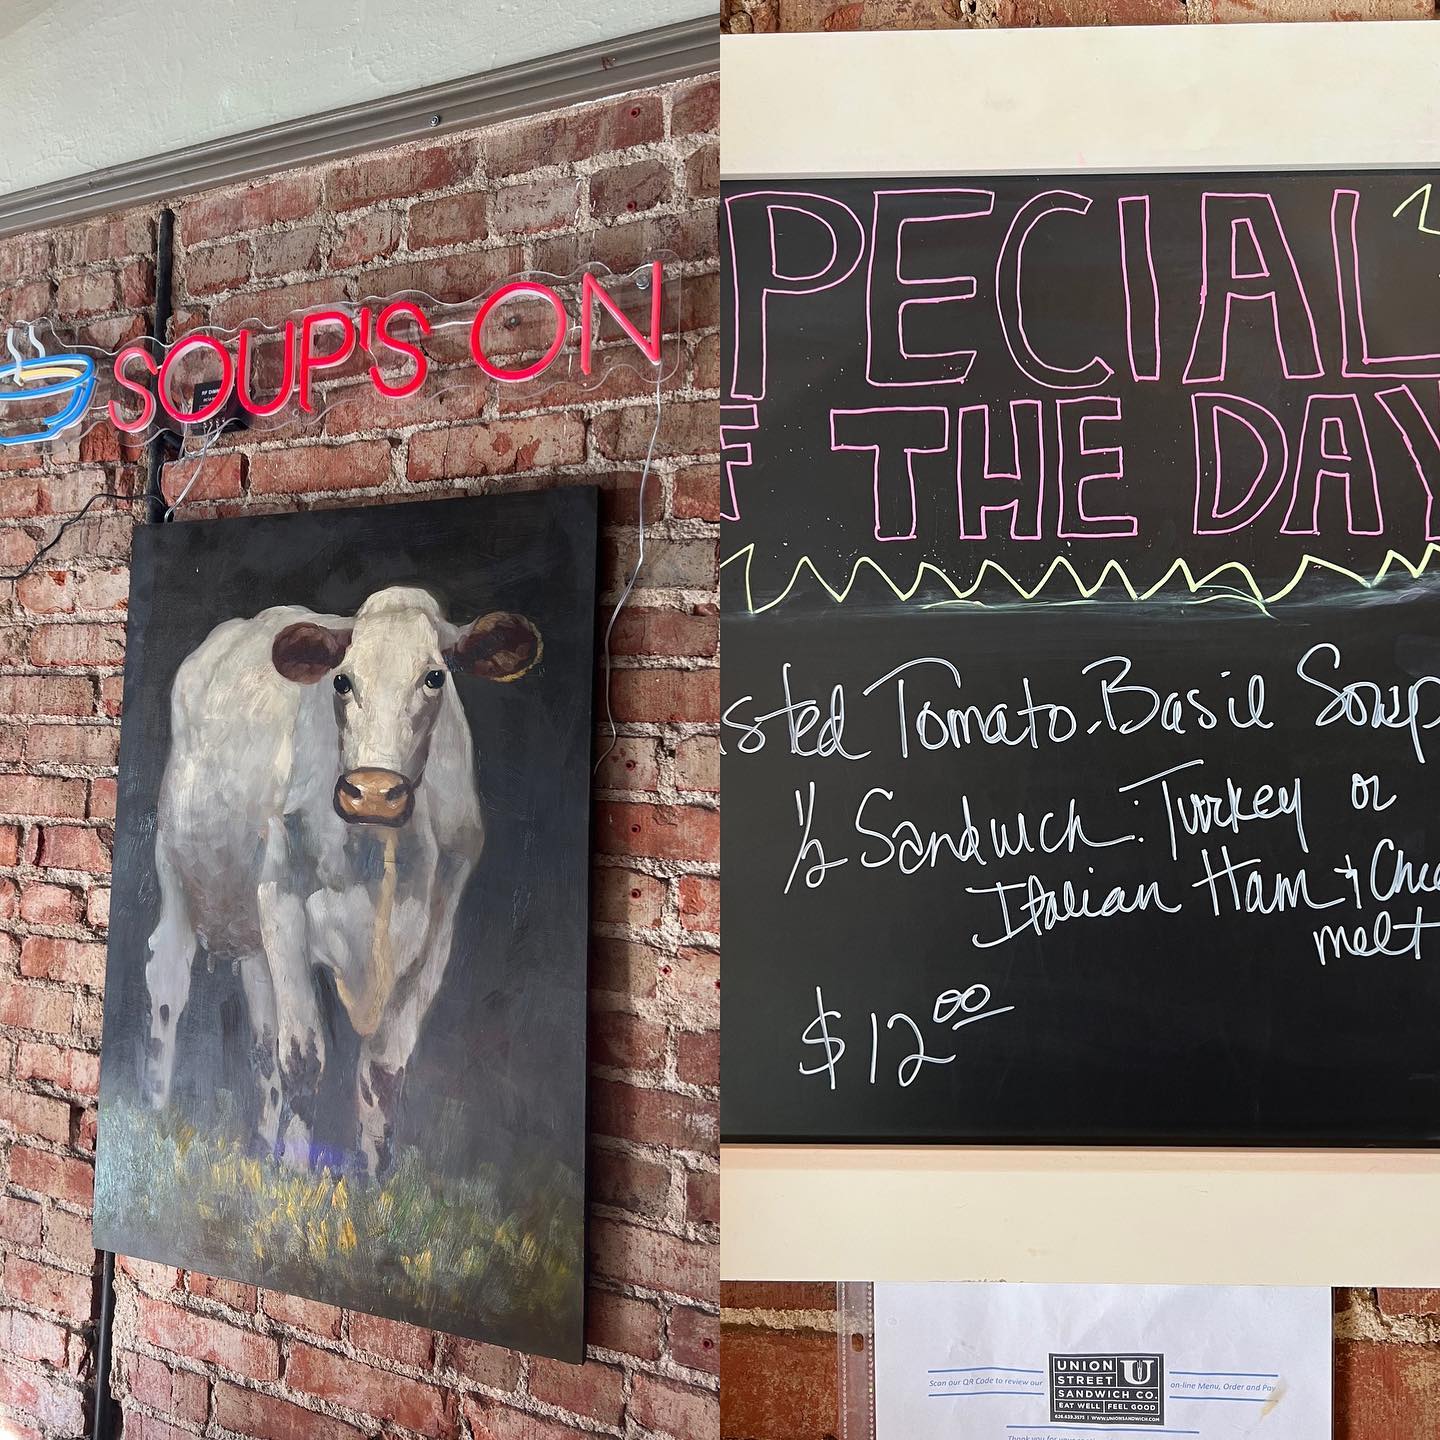 SOUP'S ON
PECIAL
F THE DAY
sted Tomato-Basil Soup
1/2 Sandwich: Turkey or
Italian Ham & Chee
melt
$12.00
Scan our QR Code to review our
UNION
STREET
SANDWICH CO.
U
EAT WELL | FEEL GOOD
626.639.3575 | WWW.UNIONSANDWICH.COM
on-line Menu, Order and Pay